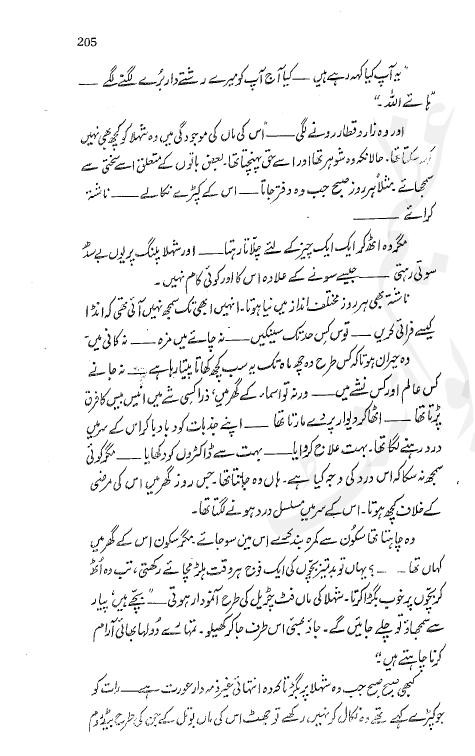 205
"یہ آپ کیا کہہ رہے ہیں —— کیا آج آپ کو میرے رشتے دار بُرے لگنے لگے ——
ہائے اللہ۔"
اور وہ زار و قطار رونے لگی —— اس کی ماں کی موجودگی میں وہ شہلا کو کچھ بھی نہیں
کہہ سکتا تھا۔ حالانکہ وہ شوہر تھا اور اسے حق پہنچتا تھا۔ بعض باتوں کے متعلق اسے سختی سے
سمجھائے۔ مثلاً ہر روز صبح جب وہ دفتر جاتا —— اس کے کپڑے نکالے —— ناشتہ
کرائے ——
مگر وہ اٹھ کر ایک ایک چیز کے لئے چلّاتا رہتا —— اور شہلا پلنگ پر یوں بے سدھ
سوتی رہتی —— جیسے سونے کے علاوہ اس کا اور کوئی کام نہیں۔
ناشتہ بھی ہر روز مختلف انداز میں نیا ہوتا۔ انہیں ابھی تک سمجھ نہیں آئی تھی کہ انڈا
کیسے فرائی کریں —— توس کس حد تک سینکیں —— نہ چائے میں مزہ —— نہ کافی میں۔
وہ حیران ہوتا کہ کس طرح وہ چھ ماہ تک یہ سب کچھ کھاتا پیتا رہا ہے —— نہ جانے
کس عالم اور کس نشے میں —— ورنہ تو اسماء کے گھر میں ذرا کسی شے میں انیس بیس کا فرق
پڑتا تھا —— اٹھا کر دیوار پر دے مارتا تھا —— اپنے جذبات کو دبا دبا کر اس کے سر میں
درد رہنے لگا تھا۔ بہت علاج کروایا —— بہت سے ڈاکٹروں کو دکھایا —— مگر کوئی
سمجھ نہ سکا کہ اس درد کی وجہ کیا ہے۔ ہاں وہ جانتا تھا۔ جس روز گھر میں اس کی مرضی
کے خلاف کچھ ہوتا۔ اس کے سر میں مسلسل درد ہونے لگتا تھا۔
وہ چاہتا تھا سکون سے کمرہ بند کرکے اس میں سو جائے۔ مگر سکون اس کے گھر میں
کہاں تھا —— ؟ یہاں تو بدتمیز بچّوں کی ایک فوج ہر وقت ہلڑ مچائے رکھتی، تب وہ اُٹھ
کر بچوں پر خوب بگڑا کرتا۔ شہلا کی ماں فٹ چڑیل کی طرح آنمودار ہوتی —— "بچے ہیں، پیار
سے سمجھاؤ تو چلے جائیں گے۔ جاؤ بھئی اس طرف جا کر کھیلو۔ تمہارے دولہا بھائی آرام
کرنا چاہتے ہیں۔"
کبھی صبح صبح جب وہ شہلا پر بگڑتا کہ وہ انتہائی غیر ذمہ دار عورت ہے —— رات کو
جو کپڑے کہے تھے وہ نکال کر نہیں رکھے تو جھٹ اس کی ماں بوتل کے جن کی طرح بیڈ روم